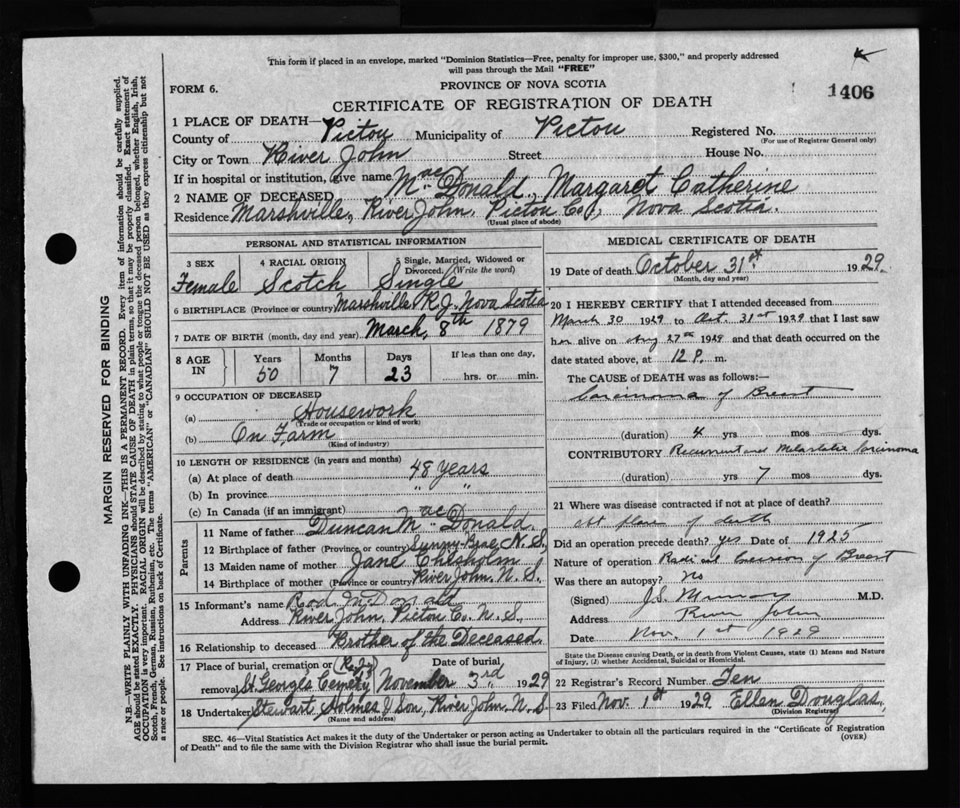 This form if placed in an envelope, marked "Dominion Statistics—Free, penalty for improper use, $300," and properly addressed
will pass through the Mail "FREE"
FORM 6.
PROVINCE OF NOVA SCOTIA
1406
CERTIFICATE OF REGISTRATION OF DEATH
1 PLACE OF DEATH—
County of Pictou Municipality of Pictou Registered No.
(For use of Registrar General only)
City or Town River John Street House No.
If in hospital or institution, give name
2 NAME OF DECEASED MacDonald, Margaret Catherine
Residence Marshville, River John, Pictou Co., Nova Scotia.
(Usual place of abode)
PERSONAL AND STATISTICAL INFORMATION
3 SEX 4 RACIAL ORIGIN 5 Single, Married, Widowed or Divorced. (Write the word)
Female Scotch Single
6 BIRTHPLACE (Province or country) Marshville R.J. Nova Scotia
7 DATE OF BIRTH (month, day and year) March, 8th 1879
8 AGE IN Years Months Days If less than one day,
50 7 23 hrs. or min.
9 OCCUPATION OF DECEASED
(a) Housework
(Trade or occupation or kind of work)
(b) On Farm
(Kind of industry)
10 LENGTH OF RESIDENCE (in years and months)
(a) At place of death 48 years
(b) In province " "
(c) In Canada (if an immigrant)
Parents
11 Name of father Duncan MacDonald
12 Birthplace of father (Province or country) Sunny Brae N.S.
13 Maiden name of mother Jane Chisholm
14 Birthplace of mother (Province or country) River John, N.S.
15 Informant's name Rod. McDonald
Address River John, Pictou Co. N.S.
16 Relationship to deceased Brother of the Deceased.
17 Place of burial, cremation or removal St Georges Cemetery Date of burial November 3rd 1929
18 Undertaker Stewart Holmes & Son, River John, N.S.
(Name and address)
MEDICAL CERTIFICATE OF DEATH
19 Date of death October 31st 1929.
(Month, day and year)
20 I HEREBY CERTIFY that I attended deceased from
March 30 1929 to Oct. 31st 1929 that I last saw
her alive on Aug 27th 1929 and that death occurred on the
date stated above, at 12 P. m.
The CAUSE of DEATH was as follows:
Carcinoma of Breast
(duration) 4 yrs mos dys.
CONTRIBUTORY Recurrent and Metastatic Carcinoma
(duration) yrs 7 mos dys.
21 Where was disease contracted if not at place of death?
At place of death
Did an operation precede death? yes Date of 1925
Nature of operation Radical Excision of Breast
Was there an autopsy? No
(Signed) J.S. Murray M.D.
Address River John
Date Nov. 1st 1929
State the Disease causing Death, or in death from Violent Causes, state (1) Means and Nature
of Injury, (J) whether Accidental, Suicidal or Homicidal.
22 Registrar's Record Number Ten
23 Filed Nov. 1st 1929 Ellen Douglas,
(Division Registrar)
SEC. 46—Vital Statistics Act makes it the duty of the Undertaker or person acting as Undertaker to obtain all the particulars required in the "Certificate of Registration
of Death" and to file the same with the Division Registrar who shall issue the burial permit.
(OVER)
MARGIN RESERVED FOR BINDING
N.B.—WRITE PLAINLY WITH UNFADING INK—THIS IS A PERMANENT RECORD. Every item of information should be carefully supplied.
AGE should be stated EXACTLY. PHYSICIANS should STATE CAUSE OF DEATH in plain terms, so that it may be properly classified. Exact statement of
OCCUPATION is very important. RACIAL ORIGIN will be described by stating to what people or tongue the deceased person belonged, whether English, Irish,
Scotch, French, German, Russian, Ruthenian, etc. The terms "AMERICAN" or "CANADIAN" SHOULD NOT BE USED as they express citizenship but not
a race or people. See instructions on back of Certificate.